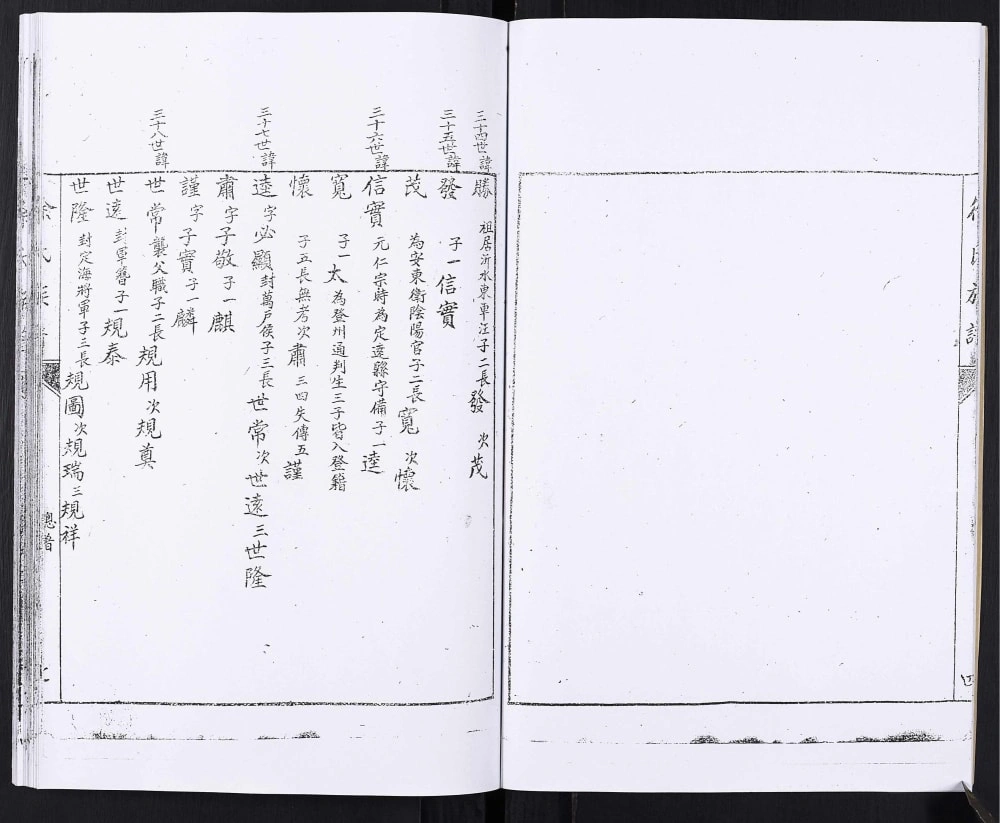 四
三十四世諱
勝 祖居沂水東軍汪子二長發次茂
三十五世諱
發 子一信實
茂 為安東衛陰陽官子二長寬次懷
三十六世諱
信實 元仁宗時為定遠縣守備子一逵
寬 子一太為登州通判生三子皆入登籍
懷 子五長無考次肅三四失傳五謹
三十七世諱
逵 字必顯封萬戶侯子三長世常次世遠三世隆
肅 字子敬子一麒
謹 字子實子一麟
三十八世諱
世常襲父職子二長規用次規奠
世遠 封軍詹子一規泰
世隆 封定海將軍子三長規圖次規瑞三規祥
總譜